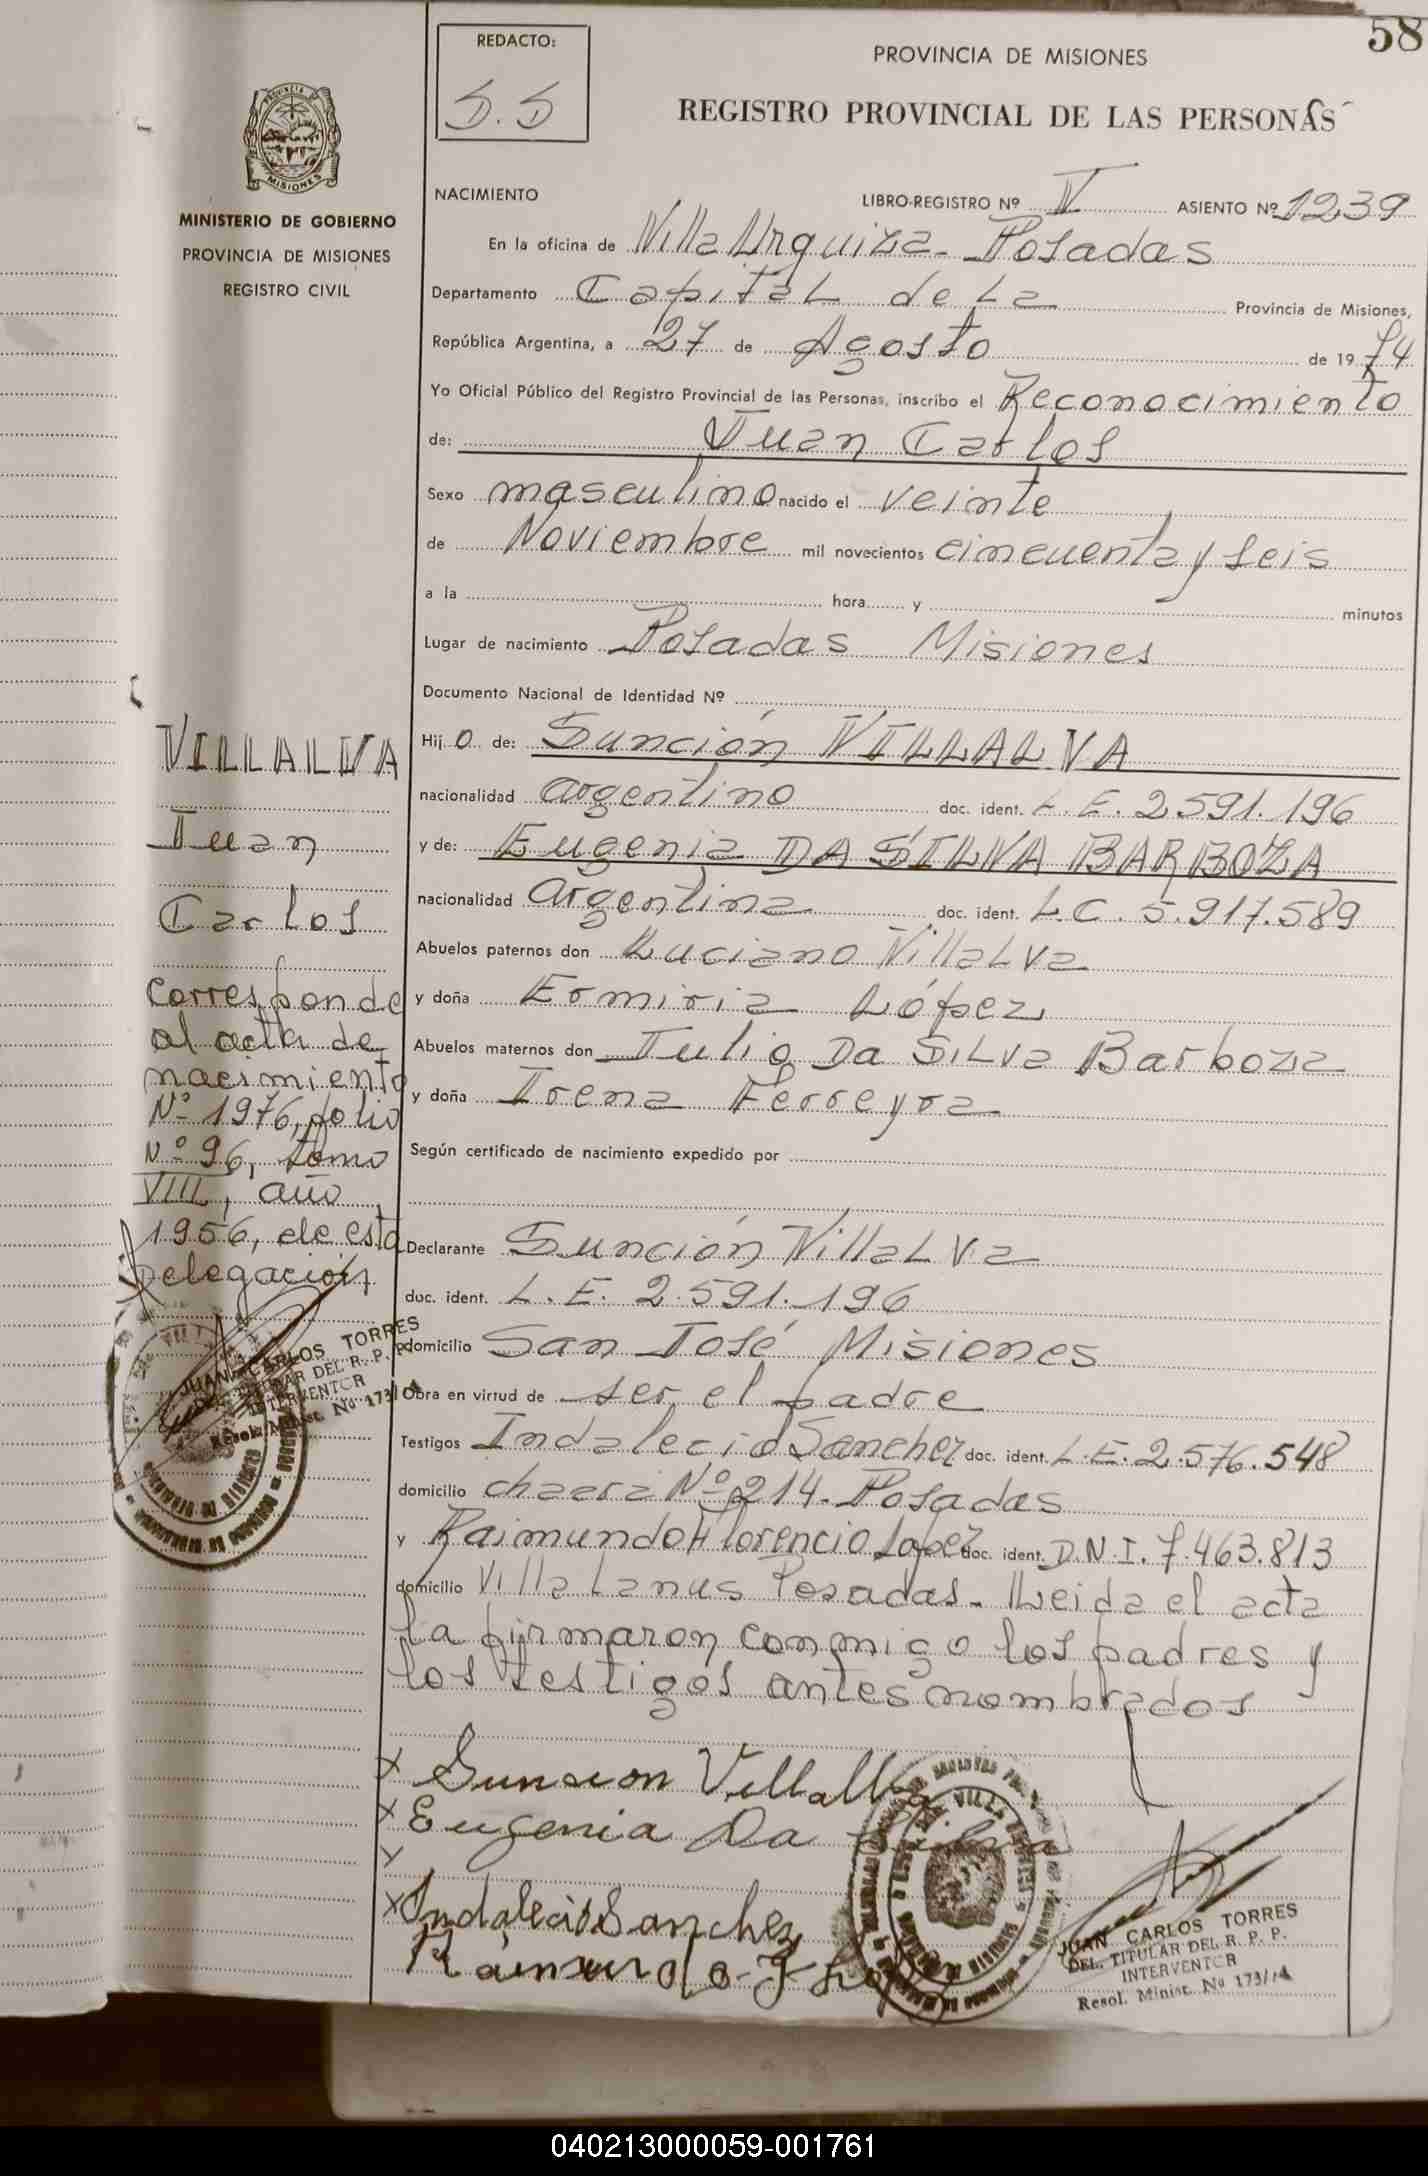 58
REDACTO:
S.S
PROVINCIA DE MISIONES
REGISTRO PROVINCIAL DE LAS PERSONAS
MISIONES
MINISTERIO DE GOBIERNO
PROVINCIA DE MISIONES
REGISTRO CIVIL
NACIMIENTO LIBRO-REGISTRO Nº IV ASIENTO Nº 1239
En la oficina de Villa Urquiza - Posadas
Departamento Capital de La Provincia de Misiones,
República Argentina, a 27 de Agosto de 19 74
Yo Oficial Público del Registro Provincial de las Personas, inscribo el Reconocimiento
de: Juan Carlos
Sexo masculino nacido el veinte
de Noviembre mil novecientos cincuenta y seis
a la hora y minutos
Lugar de nacimiento Posadas Misiones
Documento Nacional de Identidad Nº
Hij o de: Sunción VILLALVA
nacionalidad argentino doc. ident. L.E. 2.591.196
y de: Eugenia DA SILVA BARBOZA
nacionalidad argentina doc. ident. L.C. 5.917.589
Abuelos paternos don Luciano Villalva
y doña Ermiria López
Abuelos maternos don Julio Da Silva Barboza
y doña Irena Ferreyra
Según certificado de nacimiento expedido por
Declarante Sunción Villalva
doc. ident. L.E. 2.591.196
domicilio San José Misiones
Obra en virtud de ser el padre
Testigos Indalecio Sanchez doc. ident. L.E. 2.576.548
domicilio chacra Nº 214 - Posadas
y Raimundo Florencio Lopez doc. ident. D.N.I. 7.463.813
domicilio Villa Lanus Posadas - Leida el acta
la firmaron conmigo los padres y
los testigos antes nombrados
VILLALVA
Juan
Carlos
corresponde
al acta de
nacimiento
Nº 1976, folio
Nº 96, tomo
VIII, año
1956, de esta
Delegación
JUAN CARLOS TORRES
DEL. TITULAR DEL R. P. P.
INTERVENTOR
Resol. Minist. Nº 173/74
x Suncion Villalva
x Eugenia Da Silva
x
x Indalecio Sanchez
Raimundo F. Lopez
JUAN CARLOS TORRES
DEL. TITULAR DEL R. P. P.
INTERVENTOR
Resol. Minist. Nº 173/74
040213000059-001761